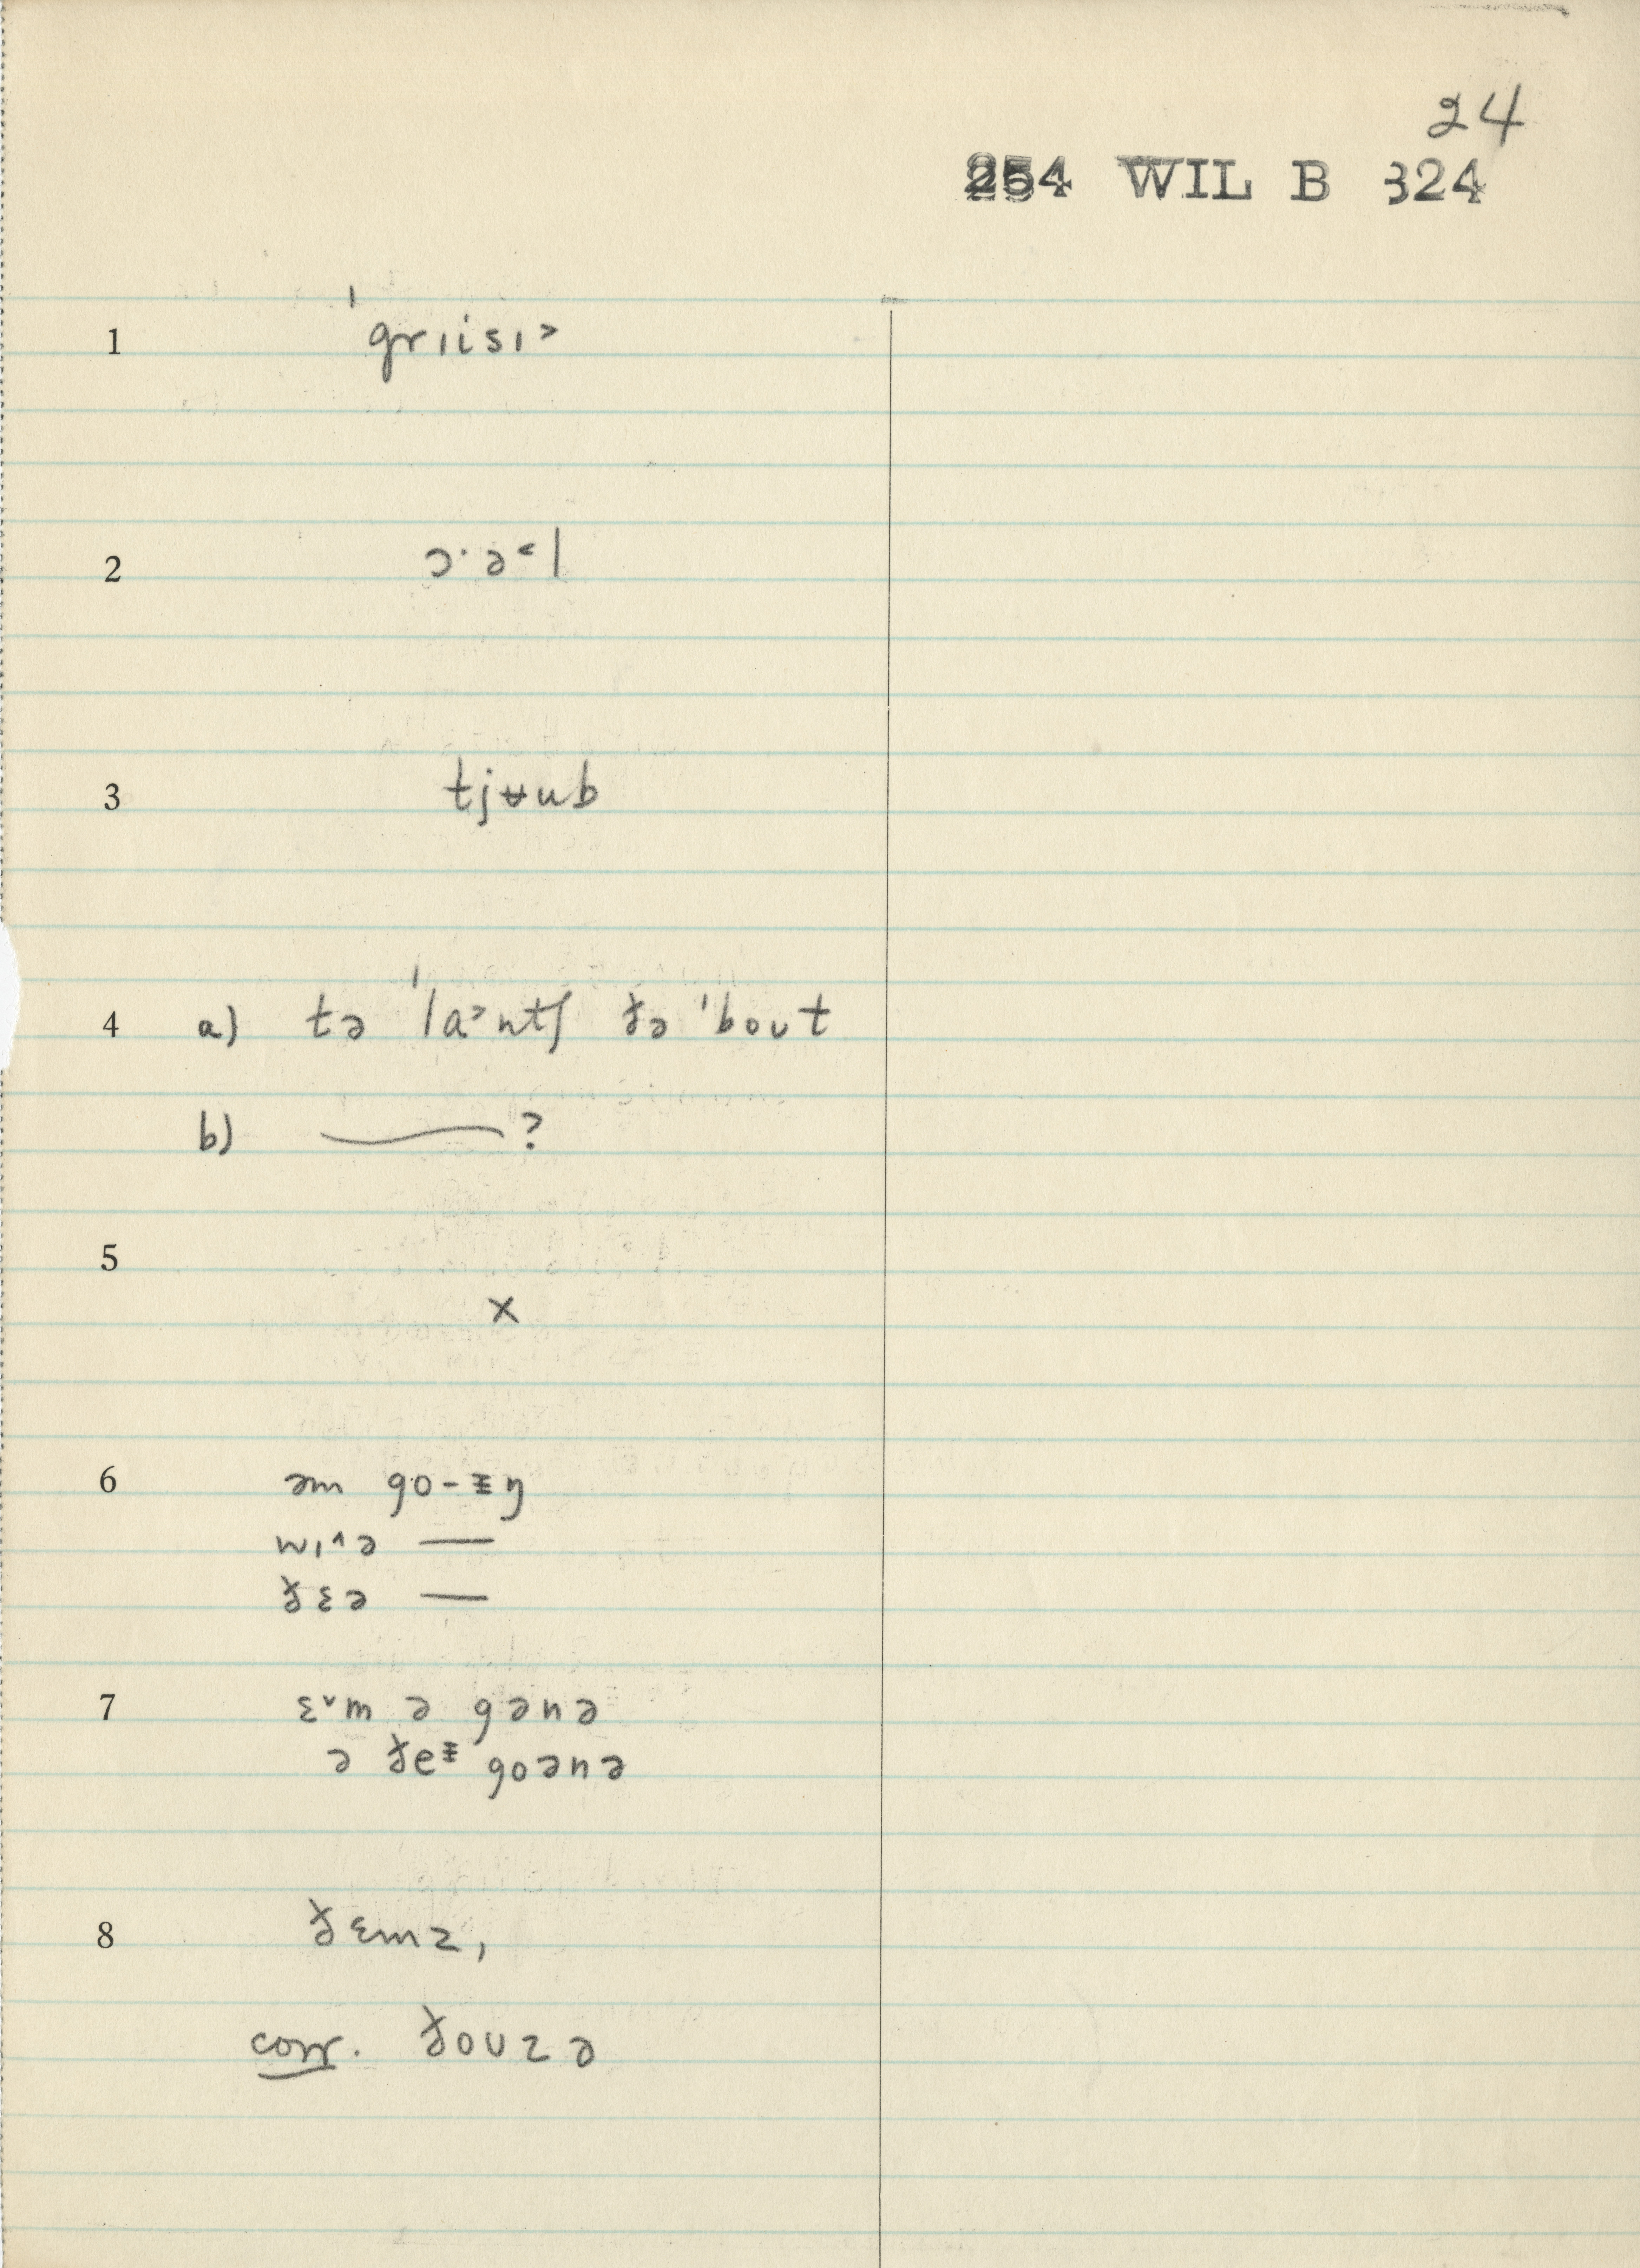 24
254 WIL B 324
1 ˈgrɪisɪ˃
2 ɔ·ə˂l
3 tjʉub
4 a) tə ˈla˃ntʃ ðə ˈbout
b) —— ?
5 x
6 əm go-ɪŋ
wɪ˄ə —
ðɛə —
7 ɛ˅m ə gənə
ə ðeᵻ goənə
8 ðɛmz,
corr. ðouzə